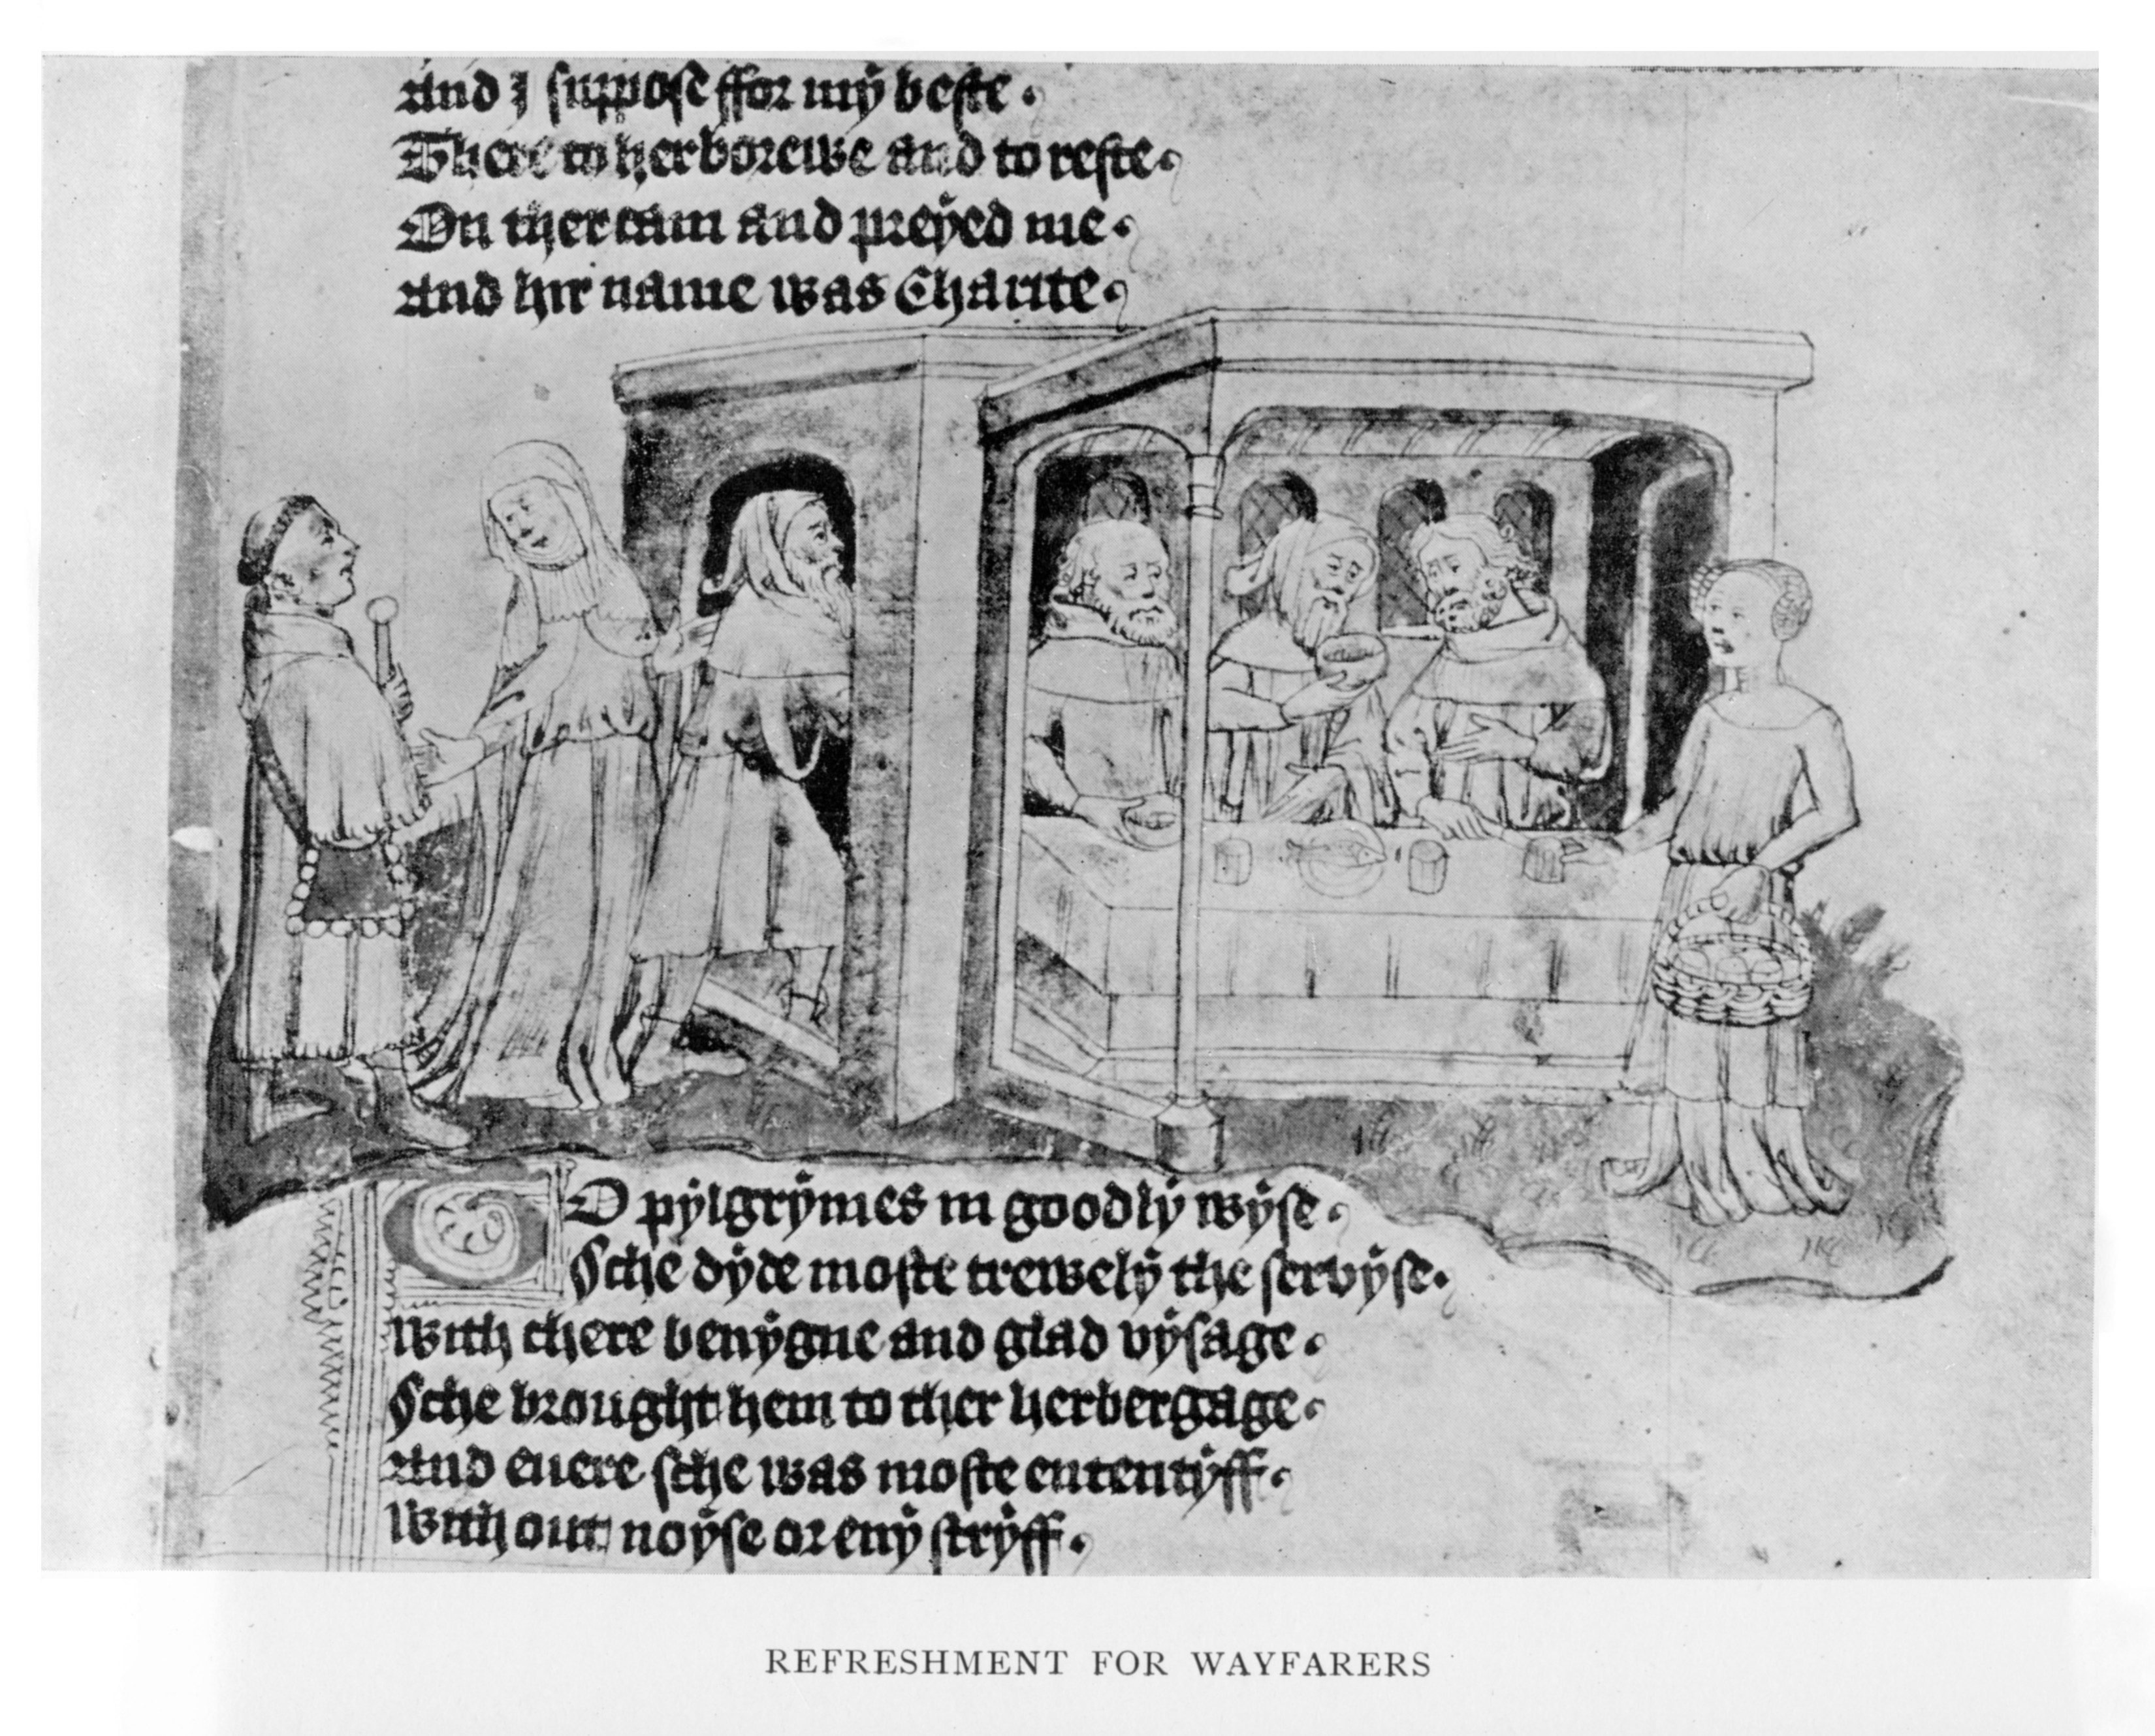 And I suppose ffor my beste.
There to herborewe and to reste.
On ther cam and preyed me.
And hir name was Charite.
TO pylgrymes in goodly wyse.
Sche dyde moste trewely the servyse.
With chere benygne and glad vysage.
Sche brought hem to ther herbergage.
And euere sche was moste ententyff.
With out noyse or eny stryff.
REFRESHMENT FOR WAYFARERS